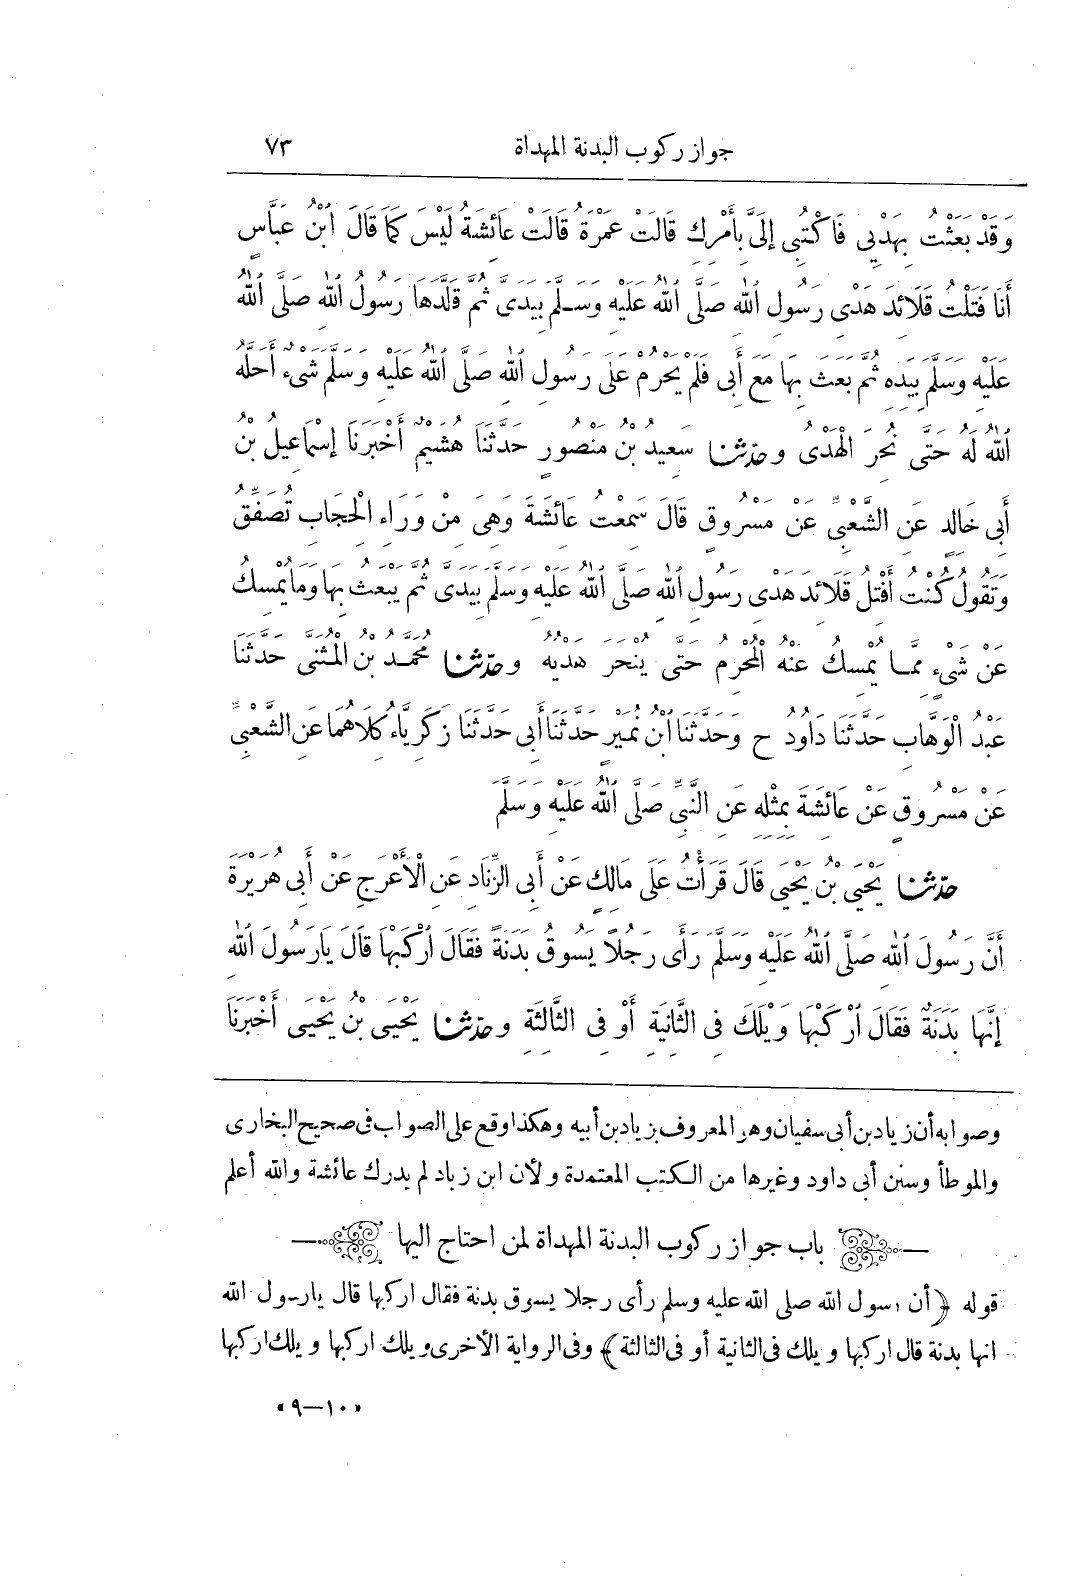 جواز ركوب البدنة المهداة ٧٣
وَقَدْ بَعَثْتُ بِهَدْيِي فَاكْتُبِي إِلَيَّ بِأَمْرِكِ قَالَتْ عَمْرَةُ قَالَتْ عَائِشَةُ لَيْسَ كَمَا قَالَ ابْنُ عَبَّاسٍ
أَنَا فَتَلْتُ قَلَائِدَ هَدْىِ رَسُولِ اللهِ صَلَّى اللهُ عَلَيْهِ وَسَلَّمَ بِيَدَىَّ ثُمَّ قَلَّدَهَا رَسُولُ اللهِ صَلَّى اللهُ
عَلَيْهِ وَسَلَّمَ بِيَدِهِ ثُمَّ بَعَثَ بِهَا مَعَ أَبِى فَلَمْ يَحْرُمْ عَلَى رَسُولِ اللهِ صَلَّى اللهُ عَلَيْهِ وَسَلَّمَ شَىْءٌ أَحَلَّهُ
اللهُ لَهُ حَتَّى نُحِرَ الْهَدْىُ وحدّثنا سَعِيدُ بْنُ مَنْصُورٍ حَدَّثَنَا هُشَيْمٌ أَخْبَرَنَا إِسْمَاعِيلُ بْنُ
أَبِى خَالِدٍ عَنِ الشَّعْبِىِّ عَنْ مَسْرُوقٍ قَالَ سَمِعْتُ عَائِشَةَ وَهِىَ مِنْ وَرَاءِ الْحِجَابِ تُصَفِّقُ
وَتَقُولُ كُنْتُ أَفْتِلُ قَلَائِدَ هَدْىِ رَسُولِ اللهِ صَلَّى اللهُ عَلَيْهِ وَسَلَّمَ بِيَدَىَّ ثُمَّ يَبْعَثُ بِهَا وَمَا يُمْسِكُ
عَنْ شَىْءٍ مِمَّا يُمْسِكُ عَنْهُ الْمُحْرِمُ حَتَّى يُنْحَرَ هَدْيُهُ وحدّثنا مُحَمَّدُ بْنُ الْمُثَنَّى حَدَّثَنَا
عَبْدُ الْوَهَّابِ حَدَّثَنَا دَاوُدُ ح وَحَدَّثَنَا ابْنُ نُمَيْرٍ حَدَّثَنَا أَبِى حَدَّثَنَا زَكَرِيَّاءُ كِلَاهُمَا عَنِ الشَّعْبِىِّ
عَنْ مَسْرُوقٍ عَنْ عَائِشَةَ بِمِثْلِهِ عَنِ النَّبِىِّ صَلَّى اللهُ عَلَيْهِ وَسَلَّمَ
حدّثنا يَحْيَى بْنُ يَحْيَى قَالَ قَرَأْتُ عَلَى مَالِكٍ عَنْ أَبِى الزِّنَادِ عَنِ الْأَعْرَجِ عَنْ أَبِى هُرَيْرَةَ
أَنَّ رَسُولَ اللهِ صَلَّى اللهُ عَلَيْهِ وَسَلَّمَ رَأَى رَجُلًا يَسُوقُ بَدَنَةً فَقَالَ ارْكَبْهَا قَالَ يَارَسُولَ اللهِ
إِنَّهَا بَدَنَةٌ فَقَالَ ارْكَبْهَا وَيْلَكَ فِى الثَّانِيَةِ أَوْ فِى الثَّالِثَةِ وحدّثنا يَحْيَى بْنُ يَحْيَى أَخْبَرَنَا
وصوابه أن زياد بن أبى سفيان وهو المعروف بزياد بن أبيه وهكذا وقع على الصواب فى صحيح البخارى
والموطأ وسنن أبى داود وغيرها من الكتب المعتمدة ولأن ابن زياد لم يدرك عائشة والله أعلم
باب جواز ركوب البدنة المهداة لمن احتاج اليها
قوله ﴿أن رسول الله صلى الله عليه وسلم رأى رجلا يسوق بدنة فقال اركبها قال يارسول الله
انها بدنة قال اركبها ويلك فى الثانية أو فى الثالثة﴾ وفى الرواية الأخرى ويلك اركبها ويلك اركبها
«١٠—٩»